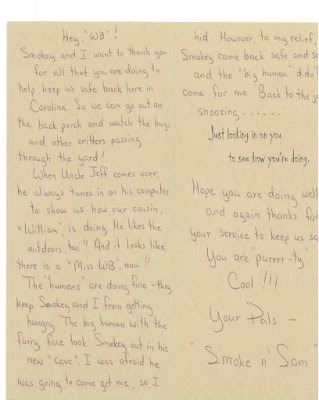 Hey, "WB"!
Smokey and I want to thank you
for all that you are doing to
help keep us safe back here in
Carolina. So we can go out on
the back porch and watch the bugs
and other critters passing
through the yard!
When Uncle Jeff comes over,
he always tunes in on his computer
to show us how our cousin,
"William", is doing. He likes the
outdoors too!! And it looks like
there is a "Miss WB", now!!
The "humans" are doing fine - they
keep Smokey and I from getting
hungry. The big human with the
furry face took Smokey out in his
new "cave". I was afraid he
was going to come get me, so I
hid. However, to my relief,
Smokey came back safe and so
and the "big human" didn'
come for me. Back to the
snoozing......
Just looking in on you
to see how you're doing.
Hope you are doing well
and again thanks for
your service to keep us sa
You are purrrr-ty
Cool!!!
Your Pals -
"Smoke n' Sam"